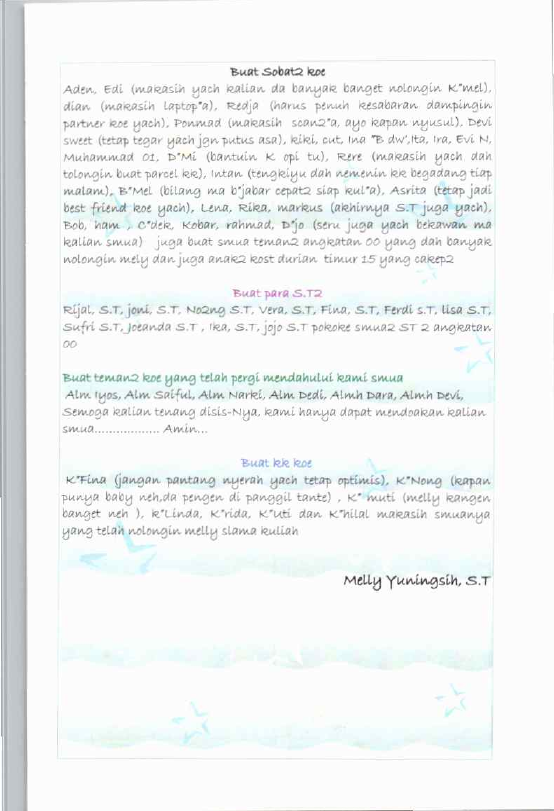 Buat Sobat2 koe
Aden, Edi (makasih yach kalian da banyak banget nolongin K"mel),
dian (makasih laptop"a), Redja (harus penuh kesabaran dampingin
partner koe yach), Ponmad (makasih scan2"a, ayo kapan nyusul), Devi
sweet (tetap tegar yach jgn putus asa), kiki, cut, Ina "B dw',Ita, Ira, Evi N,
Muhammad 01, D"Mi (bantuin K opi tu), Rere (makasih yach dah
tolongin buat parcel kk), Intan (tengkiyu dah nemenin kk begadang tiap
malam), B"Mel (bilang ma b"jabar cepat2 siap kul"a), Asrita (tetap jadi
best friend koe yach), Lena, Rika, markus (akhirnya S.T juga yach),
Bob, ham , C"dek, Kobar, rahmad, D"jo (seru juga yach bekawan ma
kalian smua)  juga buat smua teman2 angkatan 00 yang dah banyak
nolongin mely dan juga anak2 kost durian timur 15 yang cakep2
Buat para S.T2
Rijal, S.T, joni, S.T, No2ng S.T, Vera, S.T, Fina, S.T, Ferdi S.T, lisa S.T,
Sufri S.T, Joeanda S.T , Ika, S.T, jojo S.T pokoke smua2 ST 2 angkatan
00
Buat teman2 koe yang telah pergi mendahului kami smua
Alm Iyos, Alm Saiful, Alm Narki, Alm Dedi, Almh Dara, Almh Devi,
Semoga kalian tenang disis-Nya, kami hanya dapat mendoakan kalian
smua.................. Amin...
Buat kk koe
K"Fina (jangan pantang nyerah yach tetap optimis), K"Nong (kapan
punya baby neh,da pengen di panggil tante) , K" muti (melly kangen
banget neh ), k"Linda, K"rida, K"Uti dan K"hilal makasih smuanya
yang telah nolongin melly slama kuliah
Melly Yuningsih, S.T